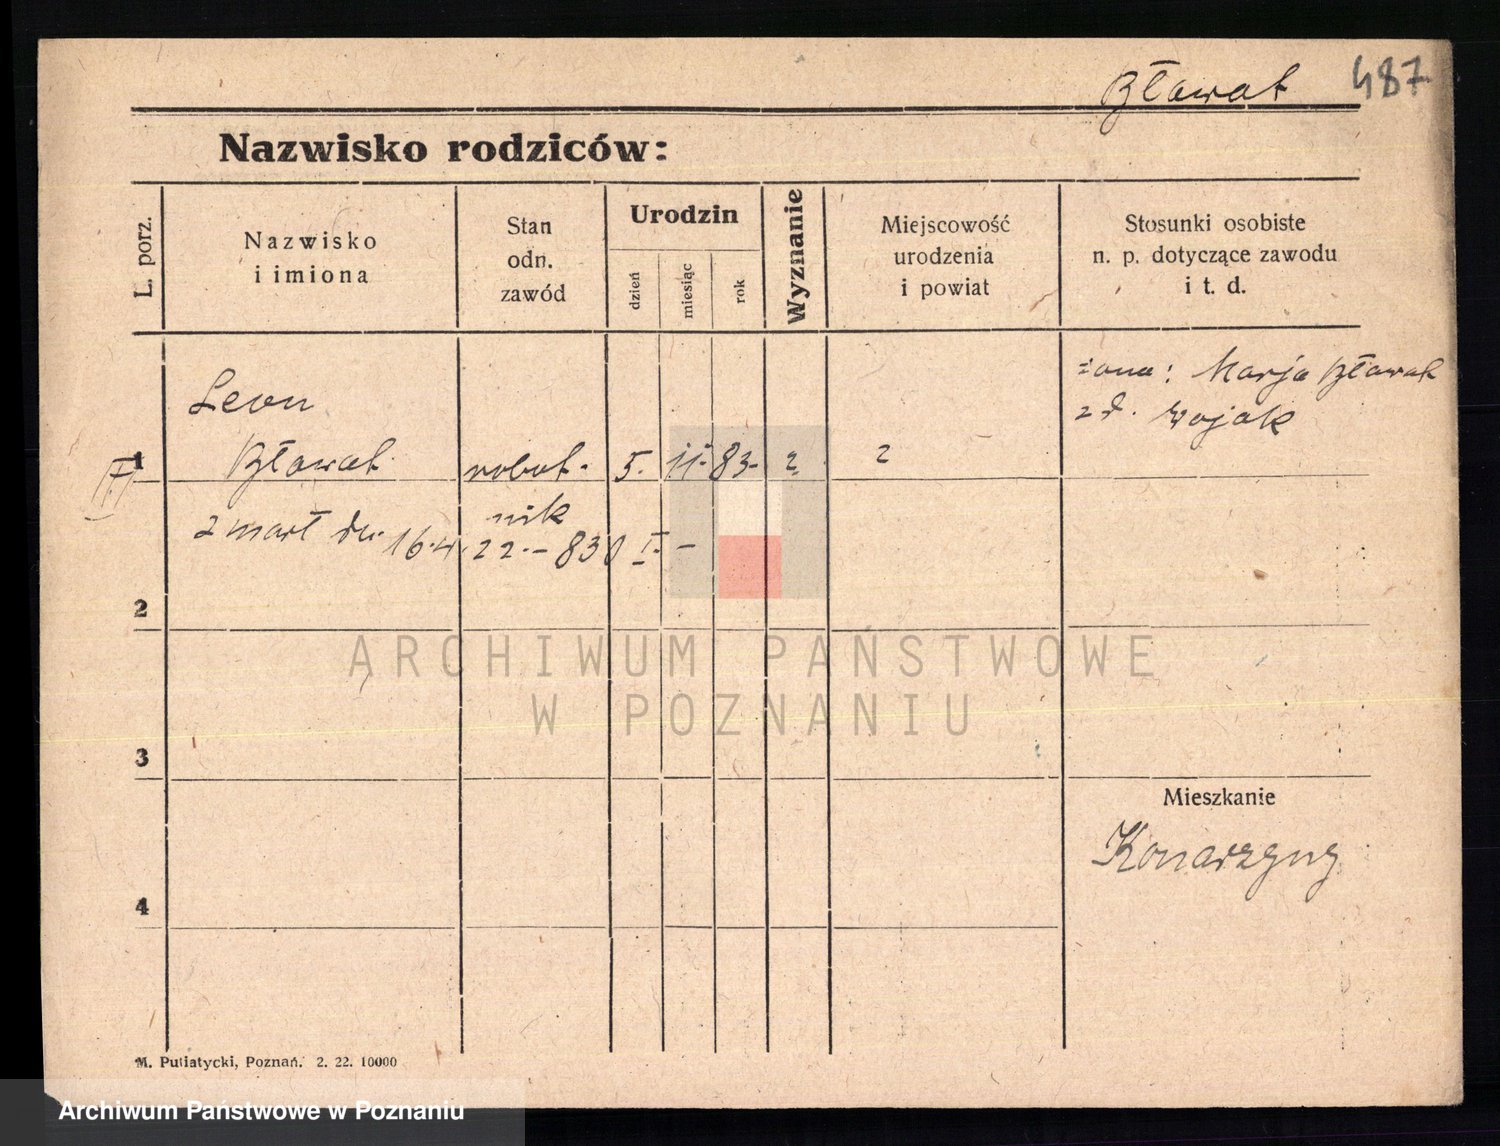 Bławat 487
Nazwisko rodziców:
L. porz.
Nazwisko
i imiona
Stan
odn.
zawód
Urodzin
dzień
miesiąc
rok
Wyznanie
Miejscowość
urodzenia
i powiat
Stosunki osobiste
n. p. dotyczące zawodu
i t. d.
żona: Marja Bławat
z d. Wojak
Leon
1 Bławat robot- 5. 11. 83. ? ?
nik
zmarł dn. 16.4.22. – 830 I. –
2
ARCHIWUM PAŃSTWOWE
W POZNANIU
3
Mieszkanie
Konarzyny
4
M. Putiatycki, Poznań. 2. 22. 10000
Archiwum Państwowe w Poznaniu